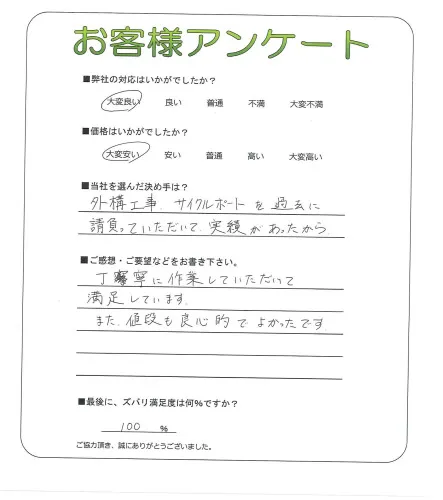 お客様アンケート
■弊社の対応はいかがでしたか？
大変良い 良い 普通 不満 大変不満
■価格はいかがでしたか？
大変安い 安い 普通 高い 大変高い
■当社を選んだ決め手は？
外構工事、サイクルポートを過去に
請負っていただいて、実績があったから。
■ご感想・ご要望などをお書き下さい。
丁寧に作業していただいて
満足しています。
また、値段も良心的でよかったです。
■最後に、ズバリ満足度は何%ですか？
100 %
ご協力頂き、誠にありがとうございました。